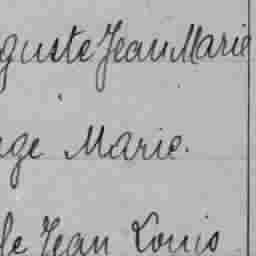 guste Jean Marie
ge Marie.
le Jean Louis